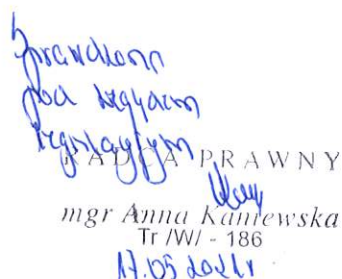 Sprawdzono
pod względem
legislacyjnym
RADCA PRAWNY
mgr Anna Kaniewska
Tr /W/ - 186
17.05.2021r